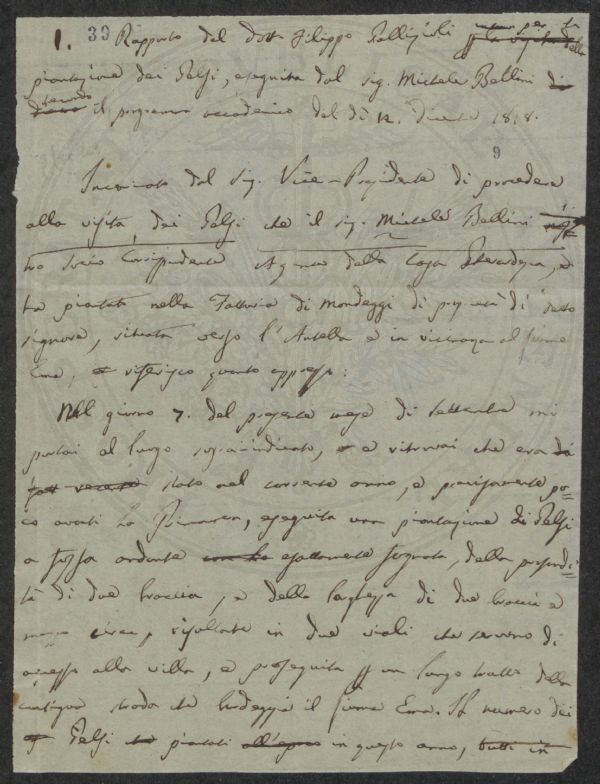 1. 39 Rapporto del Dott Filippo Gallizioli intorno per la
piantazione dei Gelsi, eseguita dal sig. Michele Bellini
secondo il programma accademico del dì 12. Dicembre 1818.
9
Incaricato dal Sig. Vice-Presidente di procedere
alla visita dei Gelsi che il sig. Michele Bellini
tro Socio Corrispondente Agente della Casa Gherardesca, 
ha piantati nella Fattoria di Mondeggi di proprietà di detto
signore, situata verso l'Antella e in vicinanza al fiume
Ema, riferisco quanto appresso:
Nel giorno 7. del presente mese di Settembre mi
portai al luogo sopraindicato, e ritrovai che era
stato nel corrente anno, e precisamente po=
co avanti la Primavera, eseguita una piantazione di Gelsi
a fossa andante esattamente fognata, della profondi=
tà di due braccia, e della larghezza di due braccia e
mezzo circa, risultante in due viali che servono di
accesso alla villa, e proseguita per un lungo tratto della
contigua strada che costeggia il fiume Ema. Il numero dei
Gelsi piantati in questo anno, tutti in